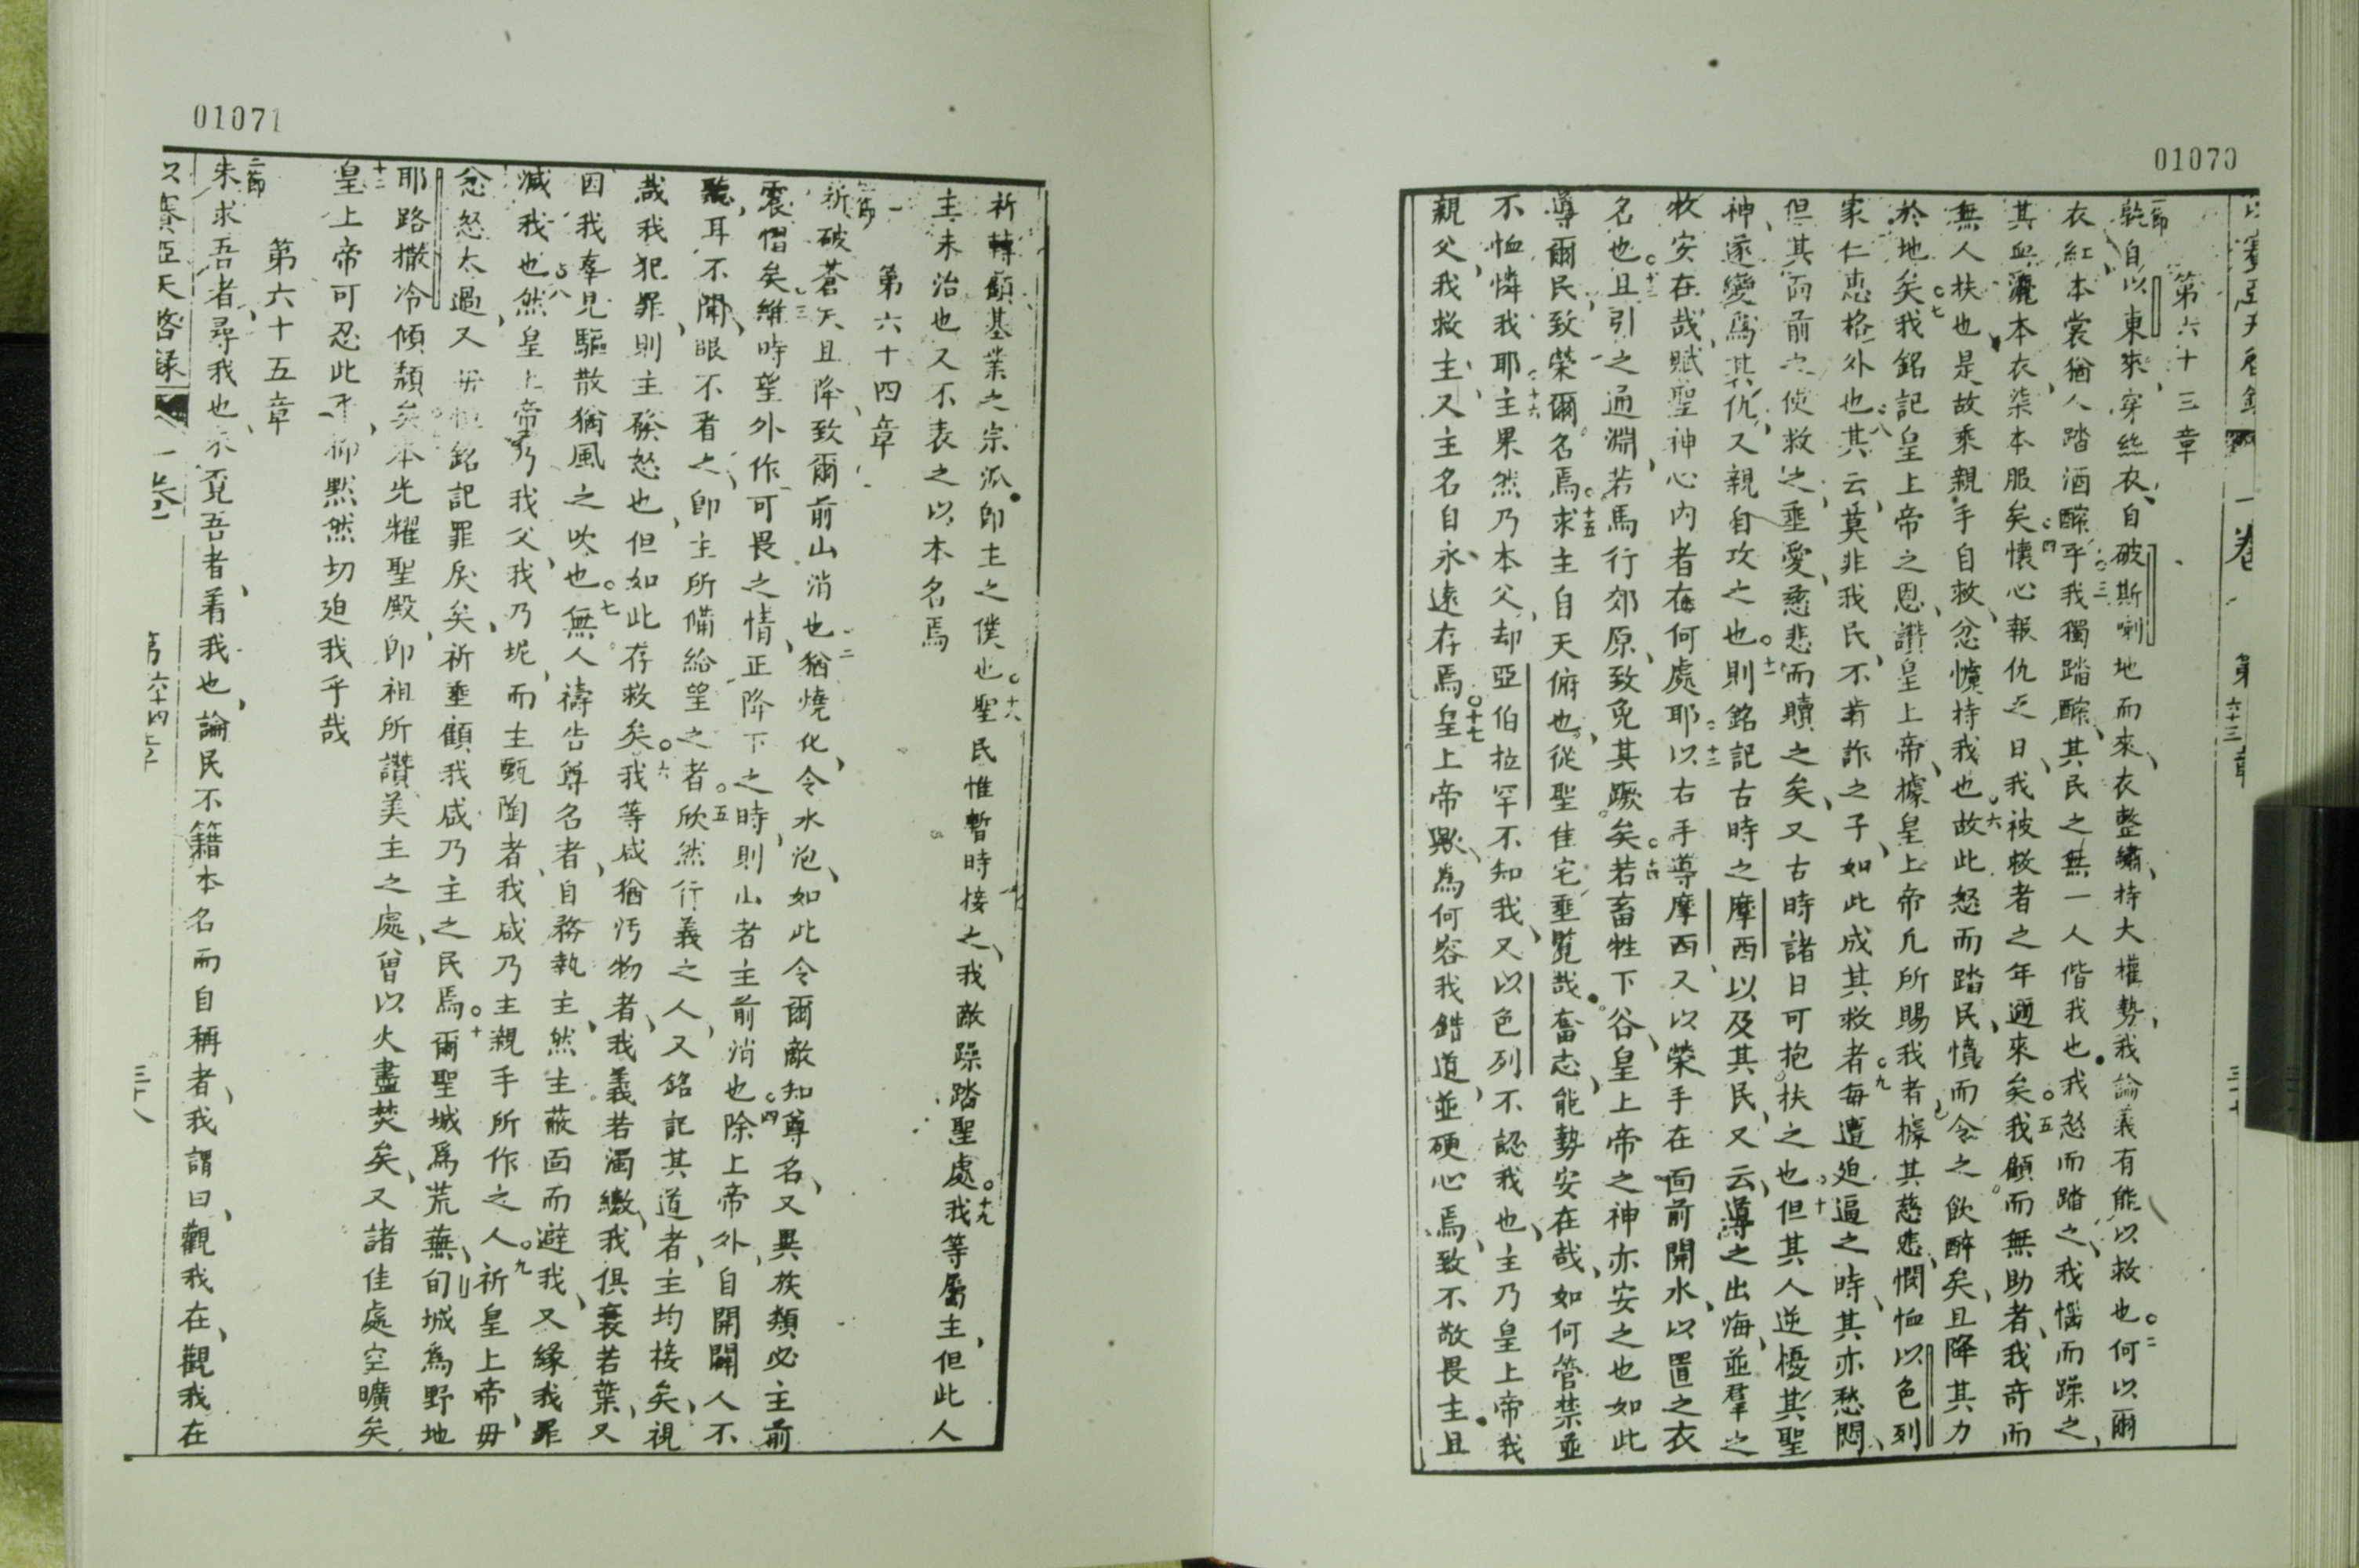 01070
第六十三章
一節 孰自以東來、穿絲衣、自破斯喇地而來、衣整繡、持大權勢、我論義有能以救也○二何以爾
衣紅、本裳猶人踏酒醡乎○三我獨踏醡、其民之無一人偕我也、我怒而踏之、我惱而躁之、
其血灑本衣、染本服矣○四懷心報仇之日、我被救者之年邇來矣○五我顧而無助者、我奇而
無人扶也、是故乘親手自救、忿憤持我也○六故此怒而踏民、憤而令之飲醉矣、且降其力
於地矣○七我銘記皇上帝之恩、讚皇上帝、據皇上帝凡所賜我者、據其慈悲、憫恤以色列
家仁惠格外也○八其云、莫非我民、不肯詐之子、如此成其救者○九每遭迫逼之時、其亦愁悶、
但其面前之使救之、垂愛、慈悲而贖之矣、又古時諸日可抱扶之也○十但其人逆擾其聖
神、遂變爲其仇、又親自攻之也○十一則銘記古時之摩西以及其民、又云、導之出海、並羣之
牧安在哉、賦聖神心內者在何處耶○十二以右手導摩西、又以榮手在面前開水、以置之衣
名也○十三且引之通淵、若馬行郊原、致免其蹶矣○十四若畜牲下谷、皇上帝之神亦安之也、如此
導爾民、致榮爾名焉○十五求主自天俯也、從聖佳宅垂覽哉、奮志、能勢安在哉、如何管禁並
不恤憐我耶○十六主果然乃本父、却亞伯拉罕不知我、又以色列不認我也、主乃皇上帝我
親父、我救主、又主名自永遠存焉○十七皇上帝歟、為何容我錯道、並硬心焉、致不敬畏主、且
01071
祈轉顧基業之宗派、卽主之僕也○十八聖民惟暫時接之、我敵躁踏聖處○十九我等屬主、但此人
主未治也、又不表之以本名焉
第六十四章
一節 祈破蒼天且降、致爾前山消也○二猶燒化、令水泡、如此令爾敵知尊名、又異族類必主前
震慴矣○三維時望外作可畏之情、正降下之時、則山者主前消也○四除上帝外、自開闢人不
聽、耳不聞、眼不看之、卽主所備給望之者○五欣然行義之人、又銘記其道者、主均接矣、視
哉我犯罪、則主發怒也、但如此存救矣○六我等咸猶污物者、我義若濁繳、我俱衰若葉、又
因我辜見驅散猶風之吹也○七無人禱告尊名者、自務執主、然主蔽面而避我、又緣我罪
滅我也○八然皇上帝乃我父、我乃坭、而主甄陶者、我咸乃主親手所作之人○九祈皇上帝、毋
忿怒太過、又毋恒銘記罪戾矣、祈垂顧、我咸乃主之民焉○十爾聖城爲荒蕪、旬城爲野地
耶路撒冷傾頹矣、本光耀聖殿、卽祖所讚美主之處、曾以火盡焚矣、又諸佳處空曠矣
十二 皇上帝可忍此乎、抑默然切迫我乎哉
第六十五章
一節 未求吾者、尋我也、未覓吾者、着我也、論民不籍本名而自稱者、我謂曰、觀我在、觀我在